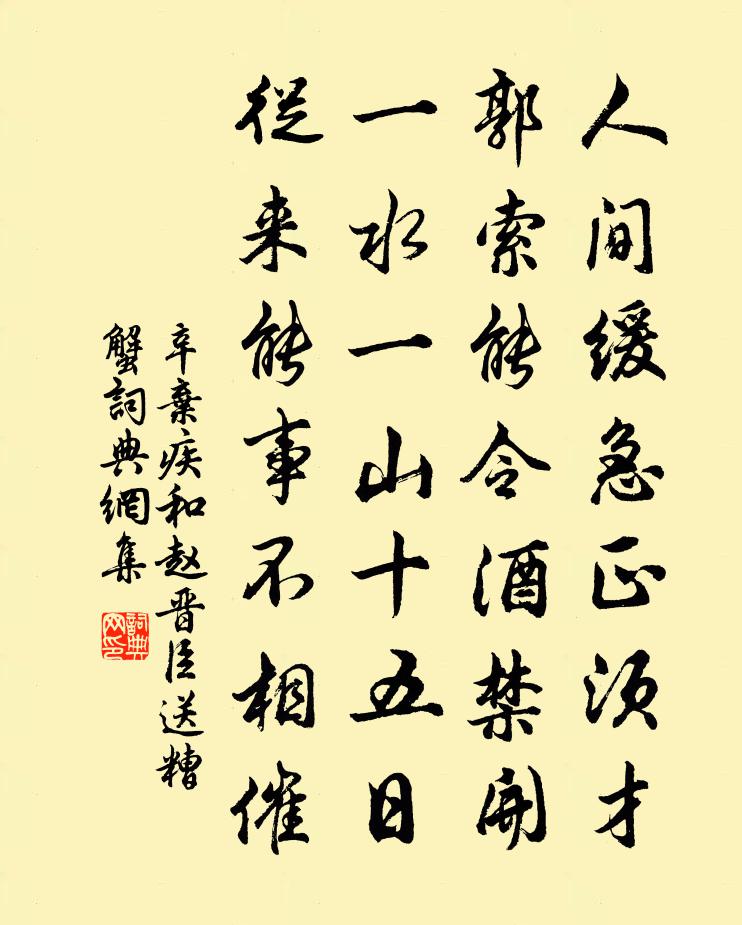 人间缓急正须才
郭索能令酒禁开
一水一山十五日
從来能事不相催
辛棄疾和赵晋臣送糟
蟹詞典網集
詞典
网印